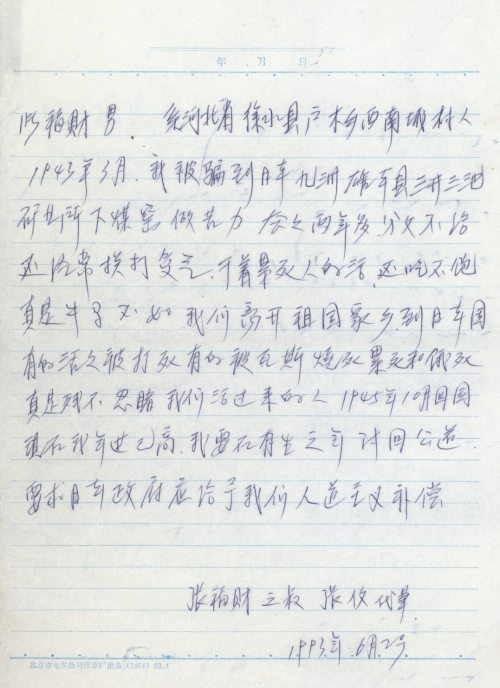 年 月 日
福财 男. 系河北省徐水县户木乡西南城村人
1943年3月. 我被骗到日本九洲雄本县三井三池
所下煤窑做苦力  两年多,分文不给
还经常挨打受气,干着累死人的活,还吃不饱
真是牛马不如 我们离开祖国家乡到日本国
有的活活被打死有的被瓦斯烧死累死和饿死
真是残不忍睹 我们活过来的人 1945年10月回国
现在我年岁已高.我要在有生之年讨回公道.
要求日本政府应给予我们人道主义补偿
张福财 之叔 张俊代草.
1993年.6月2号.